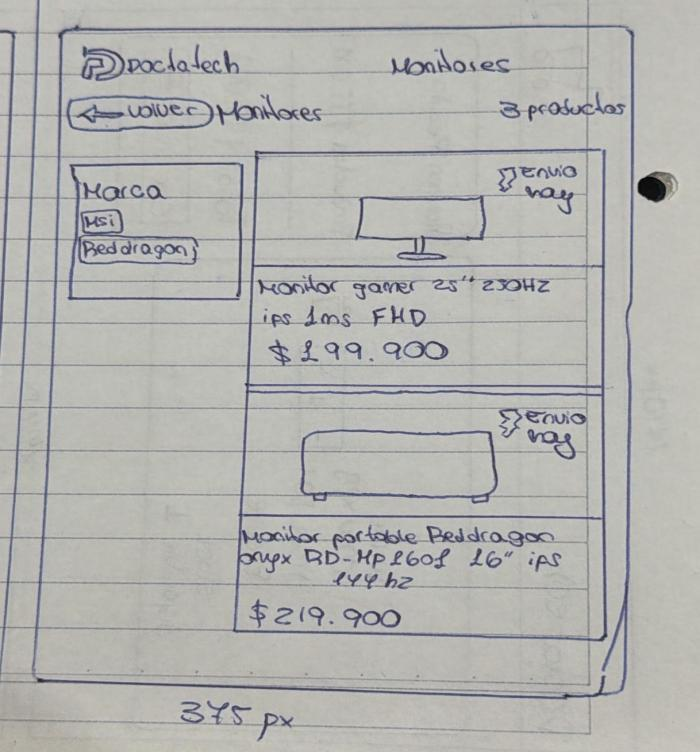 Doctatech
Monitores
← volver
Monitores
3 productos
Marca
Msi
Reddragon
Envio
hoy
Monitor gamer 25" 250HZ
ips 1ms FHD
$ 199.900
Envio
hoy
Monitor portable Reddragon
onyx RD-MP1601 16" ips
144 hz
$219.900
375 px